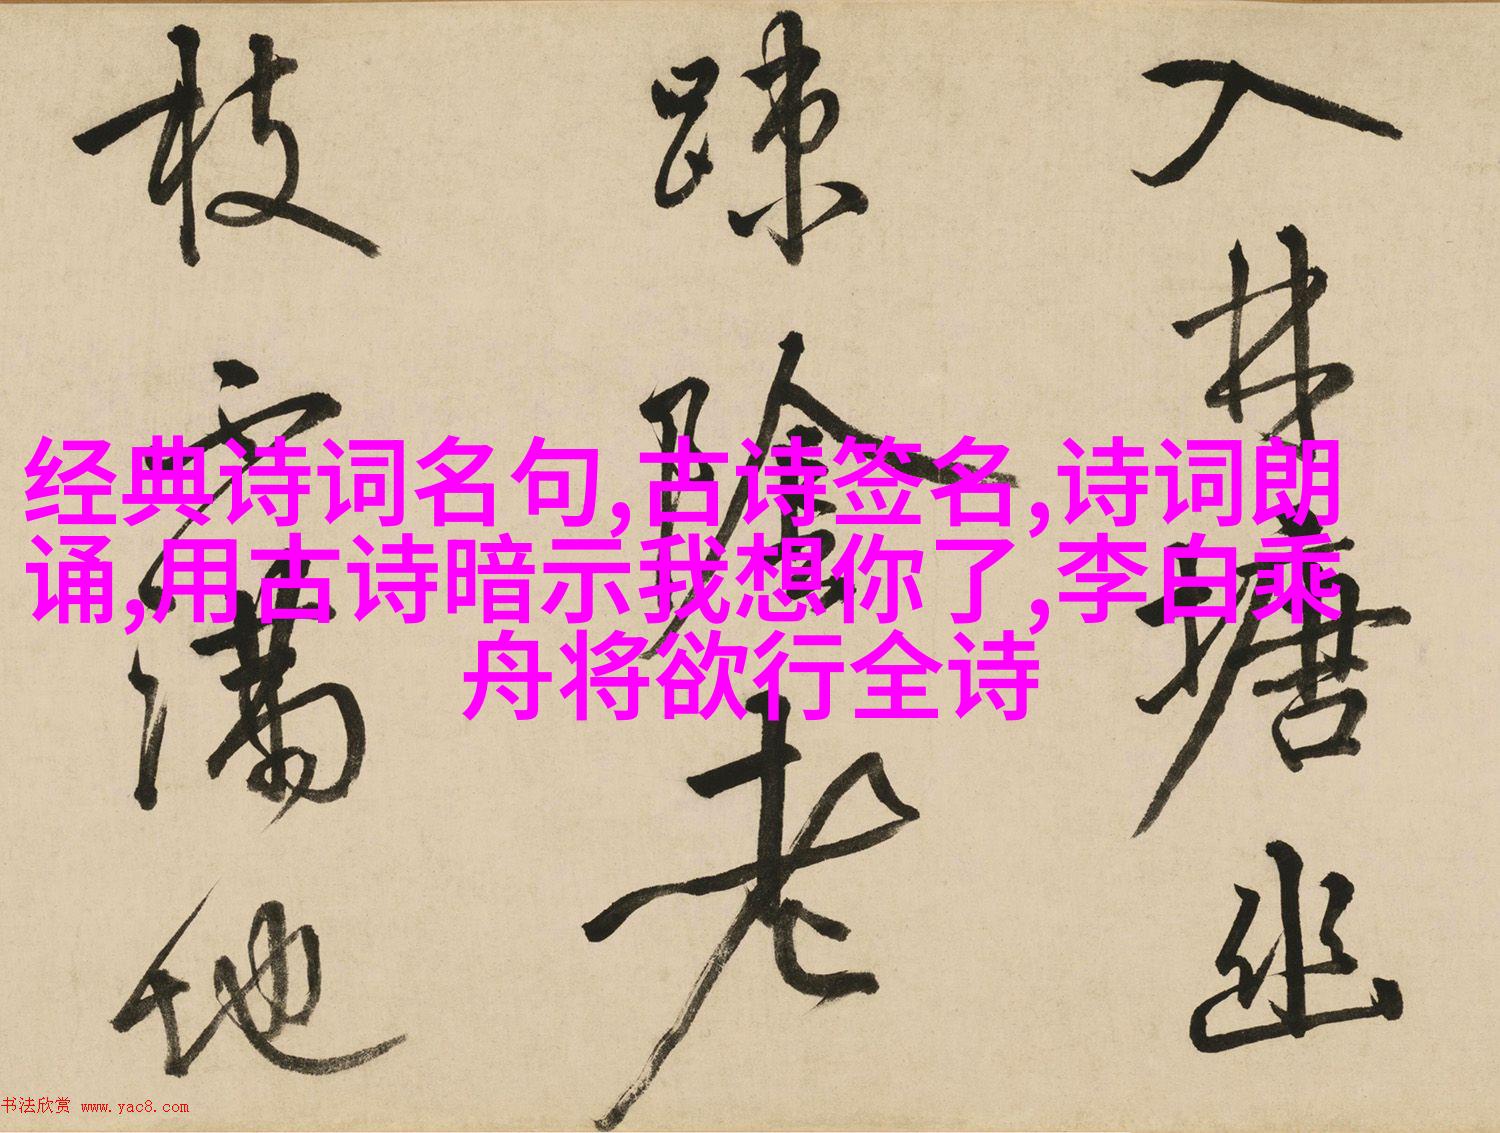 入林塘幽
疎陰老
枝雲满地
经典诗词名句,古诗签名,诗词朗
诵,用古诗暗示我想你了,李白乘
舟将欲行全诗
书法欣赏 www.yac8.com